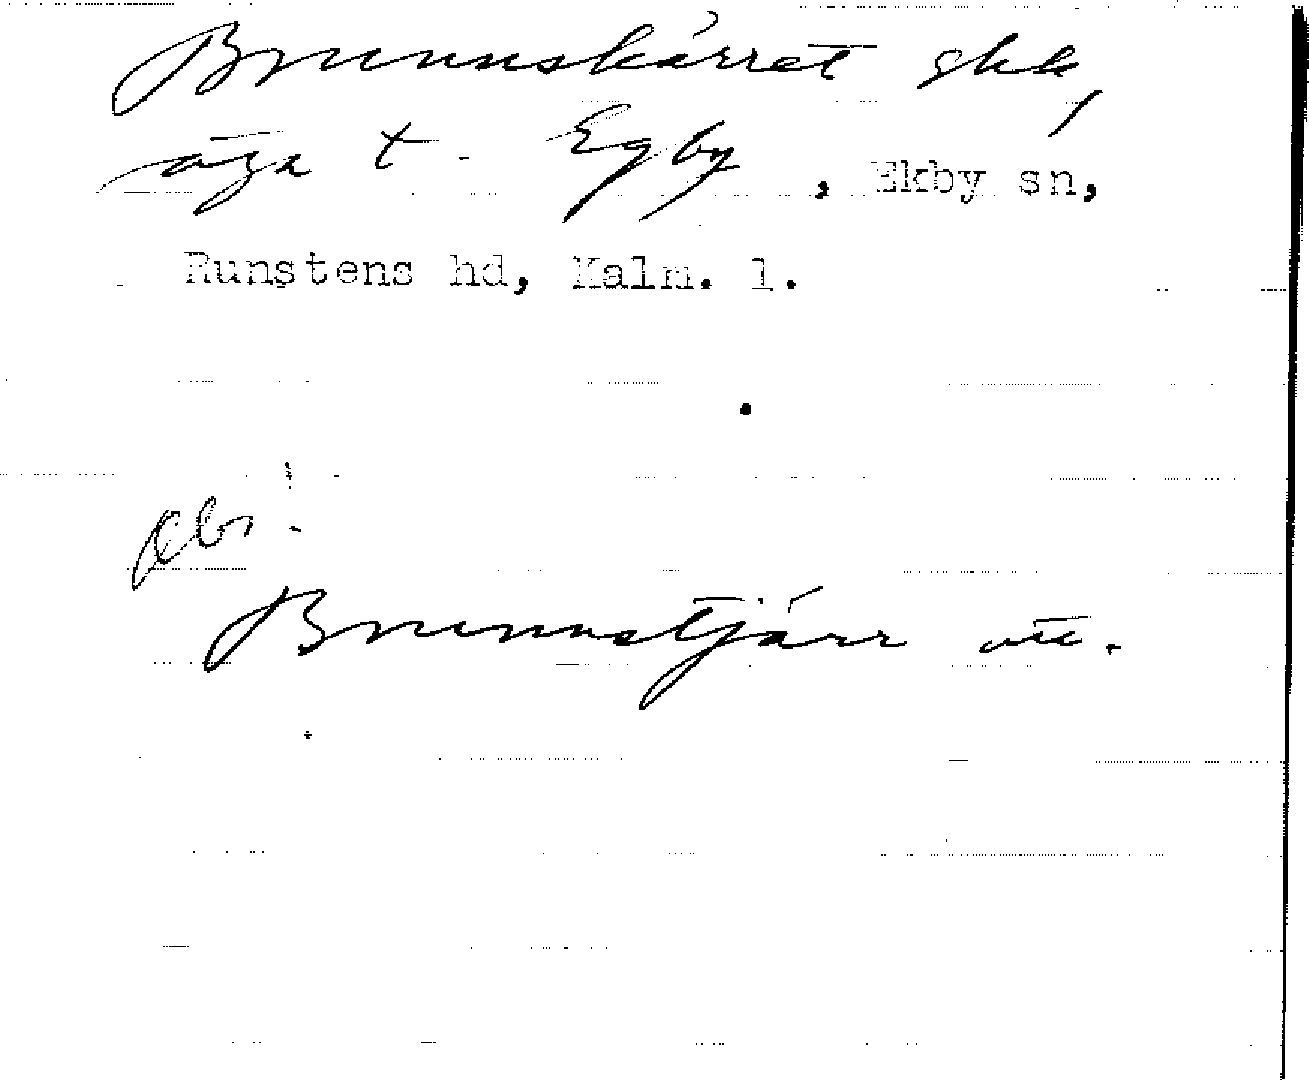 Brunnskärret gkk,
äga t. Egby, Ekby sn,
Runstens hd, Kalm. l.
Brunnstjärr